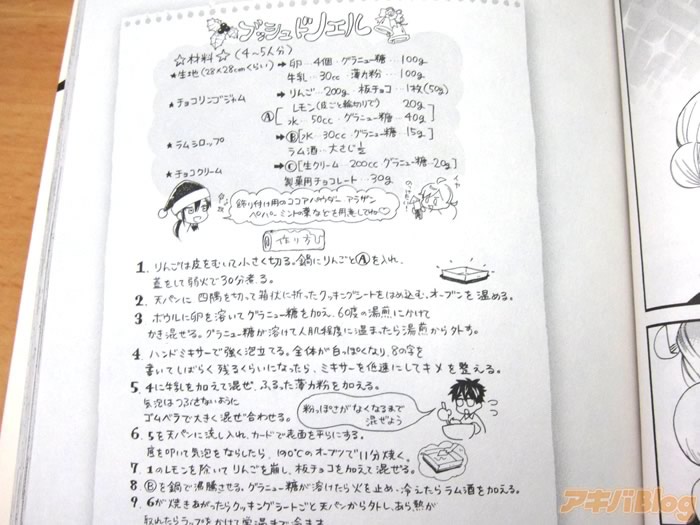 ブッシュドノエル
☆材料☆(4〜5人分)
★生地(28×28cmくらい)➡卵…4個・グラニュー糖…100g
牛乳…30cc 薄力粉…100g
★チョコリンゴジャム ➡りんご…200g 板チョコ…1枚(50g)
Ⓐ[レモン(皮ごと輪切りで) 20g
水…50cc グラニュー糖…40g]
★ラムシロップ ➡Ⓑ[水…30cc・グラニュー糖 15g]
ラム酒…大さじ½
★チョコクリーム ➡Ⓒ[生クリーム…200cc グラニュー糖…20g]
製菓用チョコレート…30g
飾り付け用のココアパウダー アラザン
ペパーミントの葉などを用意してね♡
イヤ
作り方
1. りんごは皮をむいて小さく切る。鍋にりんごとⒶを入れ、
蓋をして弱火で30分煮る。
2. 天パンに四隅を切って箱状に折ったクッキングシートをはめ込む。オーブンを温める。
3. ボウルに卵を溶いてグラニュー糖を加え、60度の湯煎にかけて
かき混ぜる。グラニュー糖が溶けて人肌程度に温まったら湯煎から外す。
4. ハンドミキサーで強く泡立てる。全体が白っぽくなり、8の字を
書いてしばらく残るくらいになったら、ミキサーを低速にしてキメを整える。
5. 4に牛乳を加えて混ぜ、ふるった薄力粉を加える。
気泡はつぶさないように
ゴムベラで大きく混ぜ合わせる。
粉っぽさがなくなるまで
混ぜよう
6. 5を天パンに流し入れ、カードで表面を平らにする。
底を叩いて気泡をならしたら、190℃のオーブンで11分焼く。
7. 1のレモンを除いてりんごを崩し、板チョコを加えて混ぜる。
8. Ⓑを鍋で沸騰させる。グラニュー糖が溶けたら火を止め、冷えたらラム酒を加える。
9. 6が焼きあがったらクッキングシートごと天パンから外し、あら熱が
取れたらラップをかけて常温まで冷ます
アキバBlog